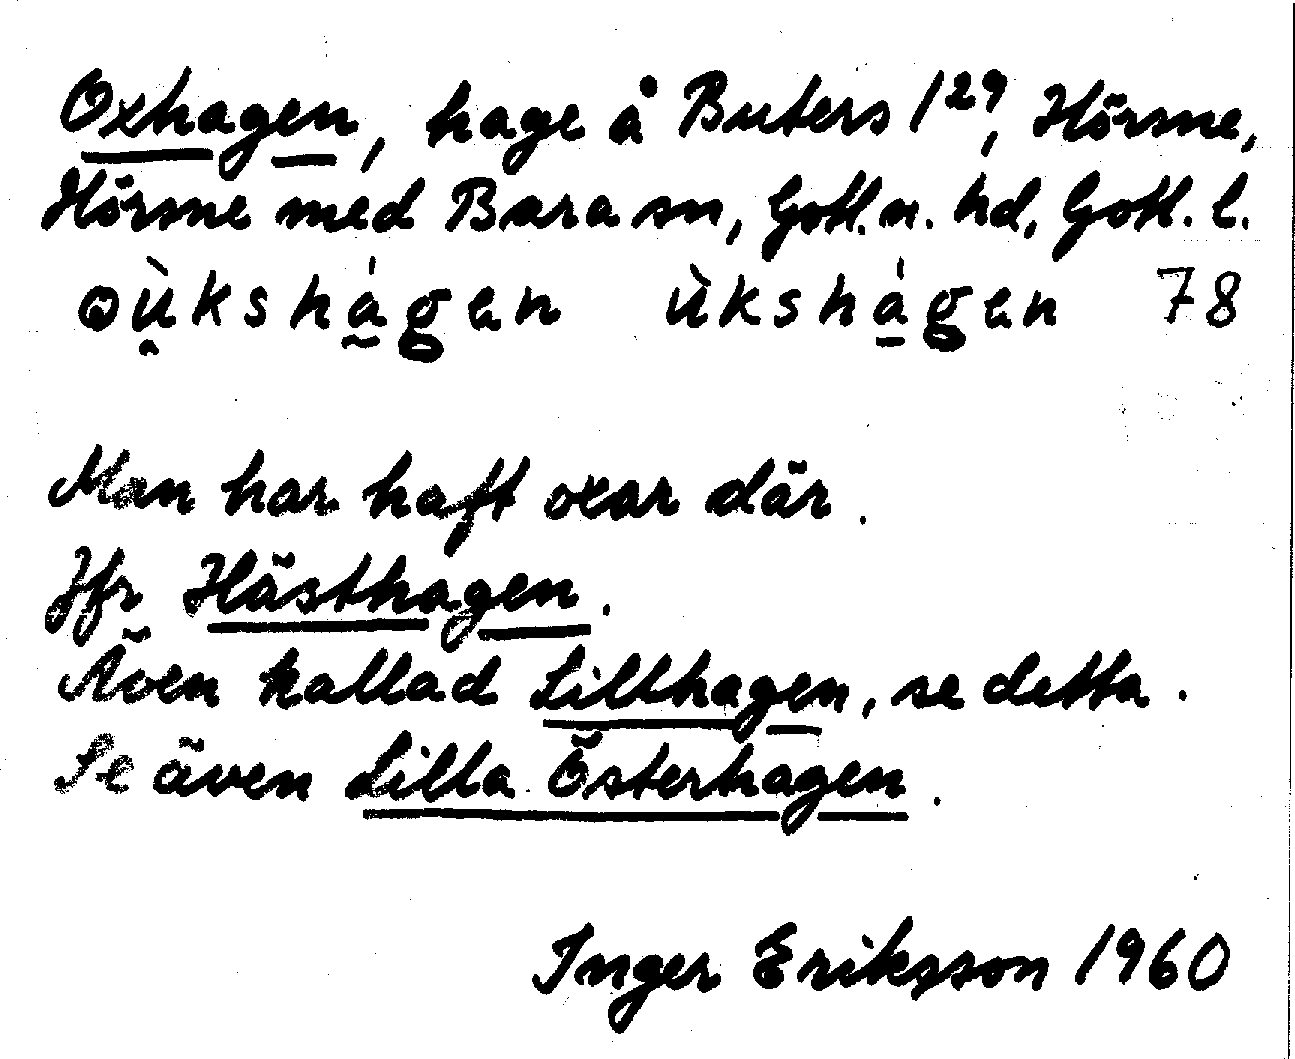 Oxhagen, hage å Buters 1²⁹, Hörsne,
Hörsne med Bara sn, Gotl. n. hd, Gotl. l.
78
Man har haft oxar där.
Jfr Hästhagen.
Även kallad Lillhagen, se detta.
Se även Lilla Österhagen.
Inger Eriksson 1960